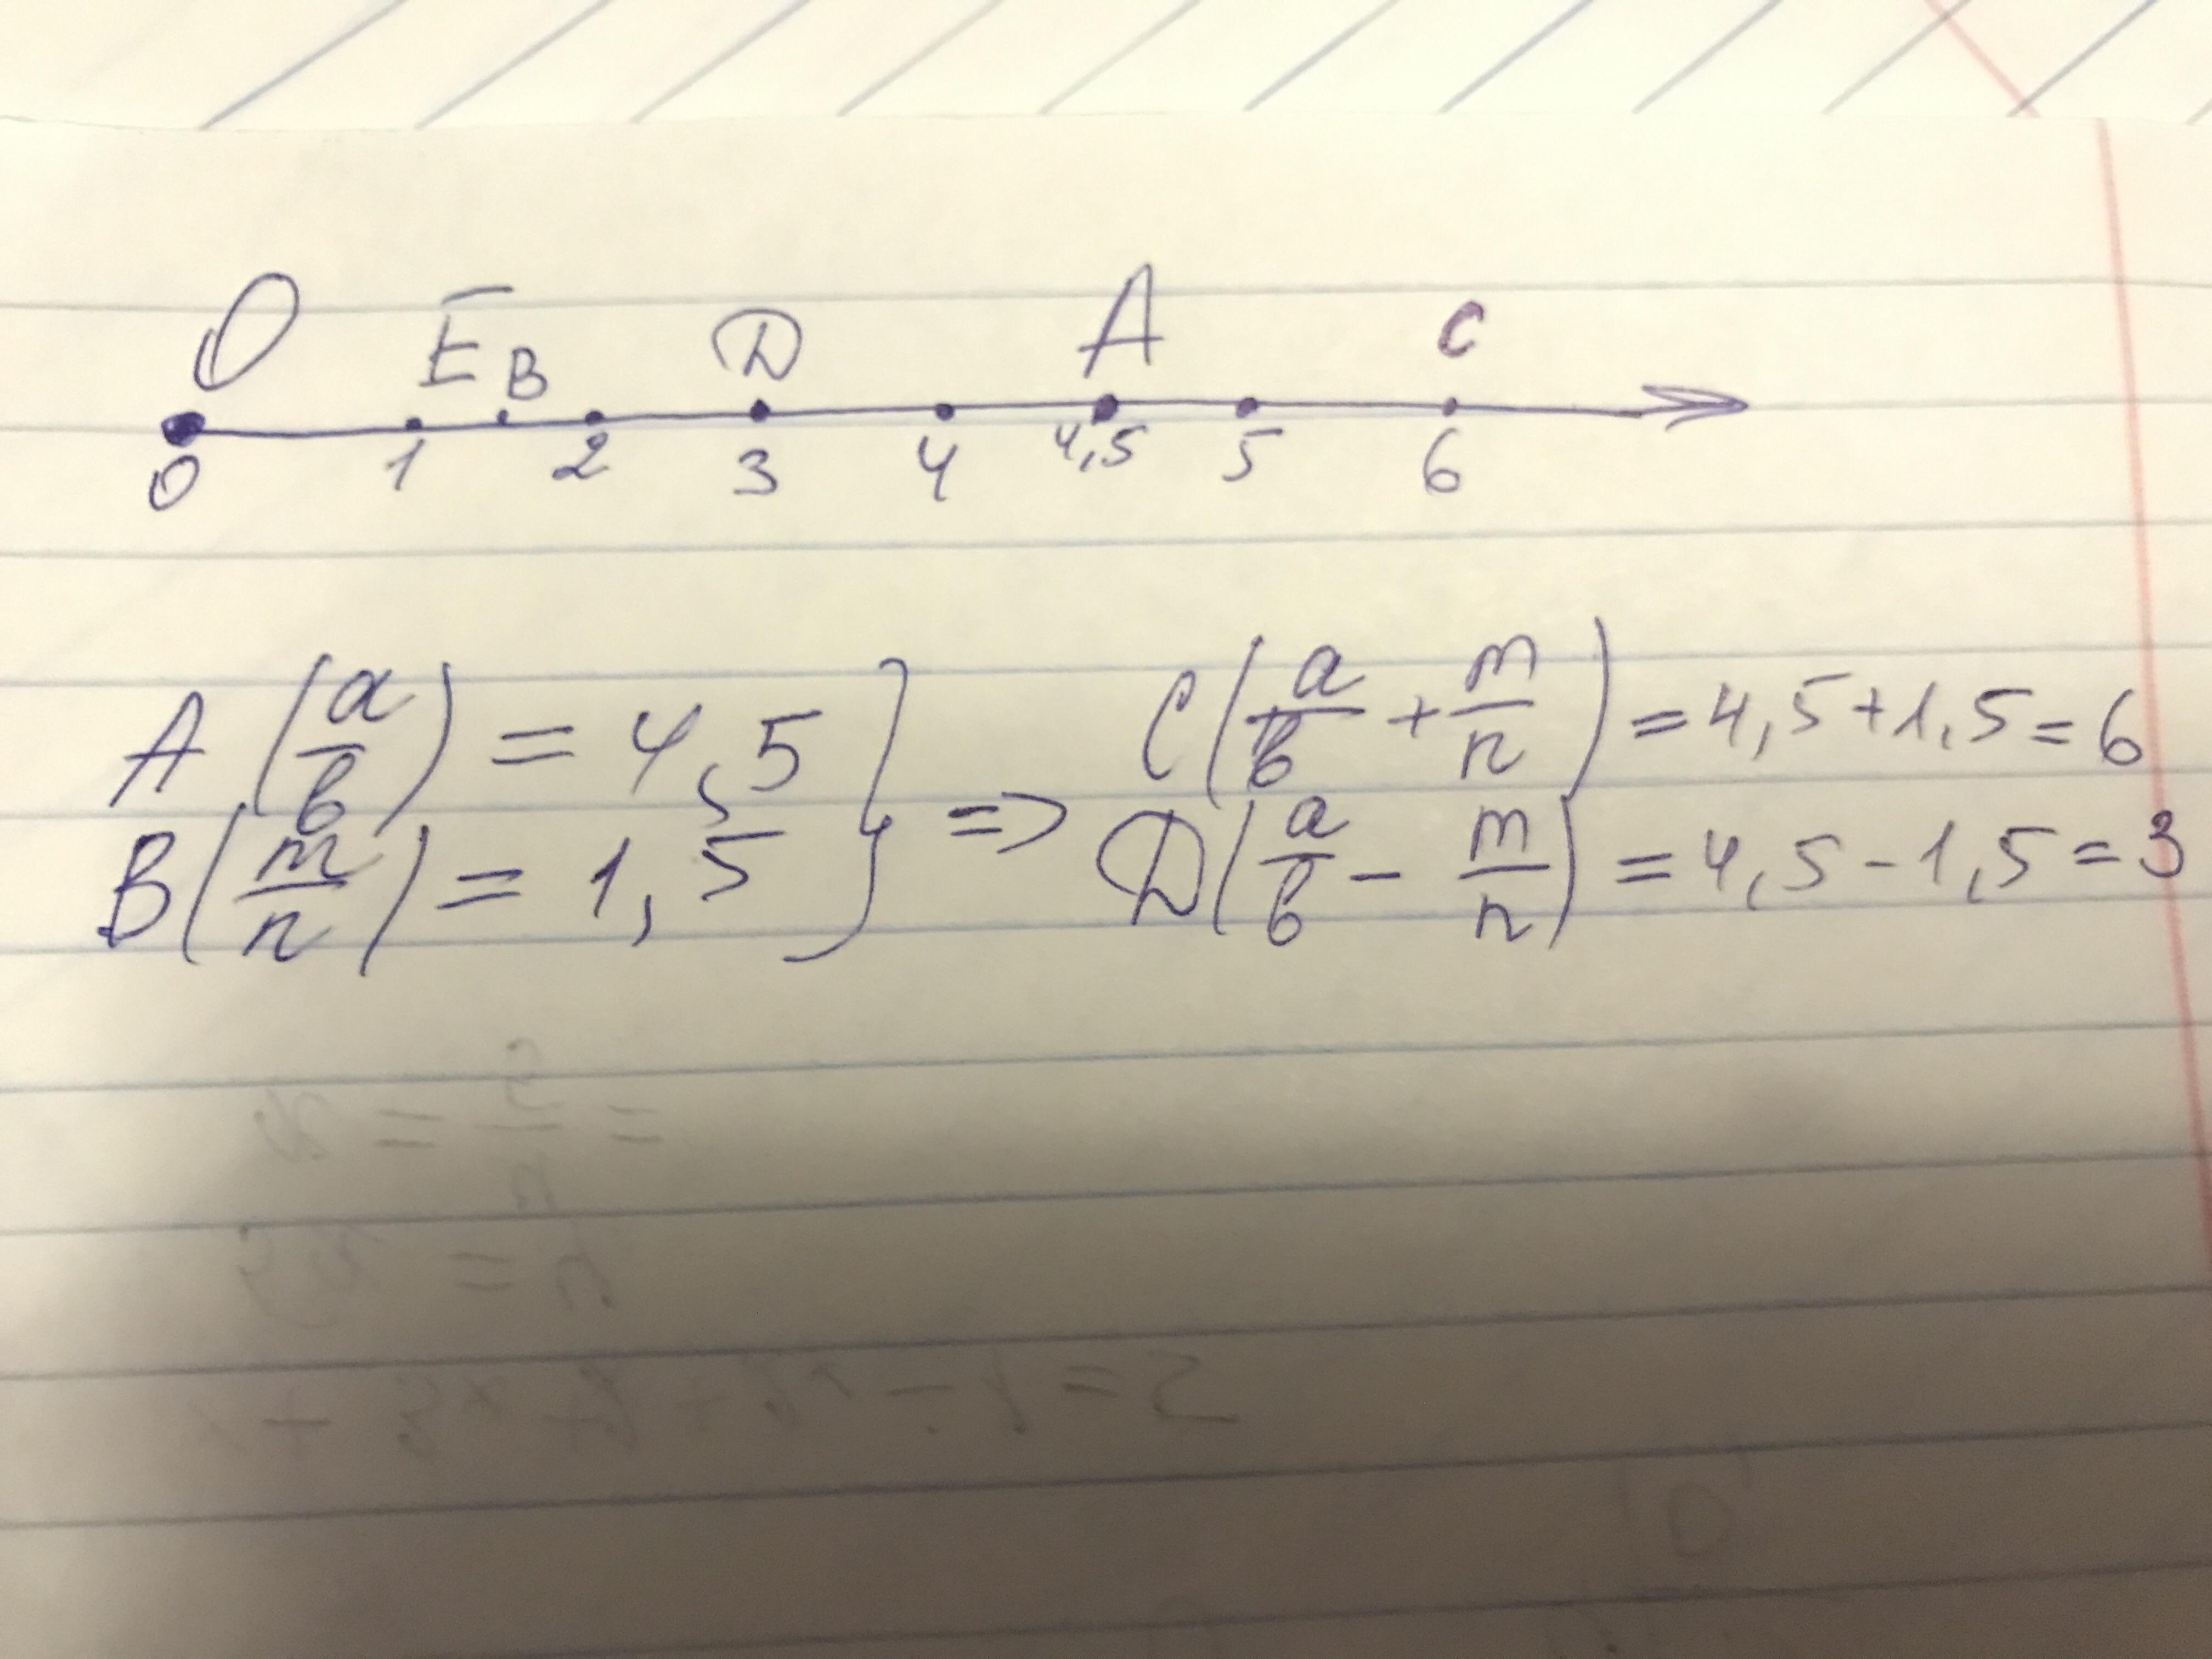 O E B D A C
0 1 2 3 4 4,5 5 6
A (a/b) = 4,5 } => C(a/b + m/n) = 4,5+1,5=6
B(m/n) = 1,5 D(a/b - m/n) = 4,5-1,5=3